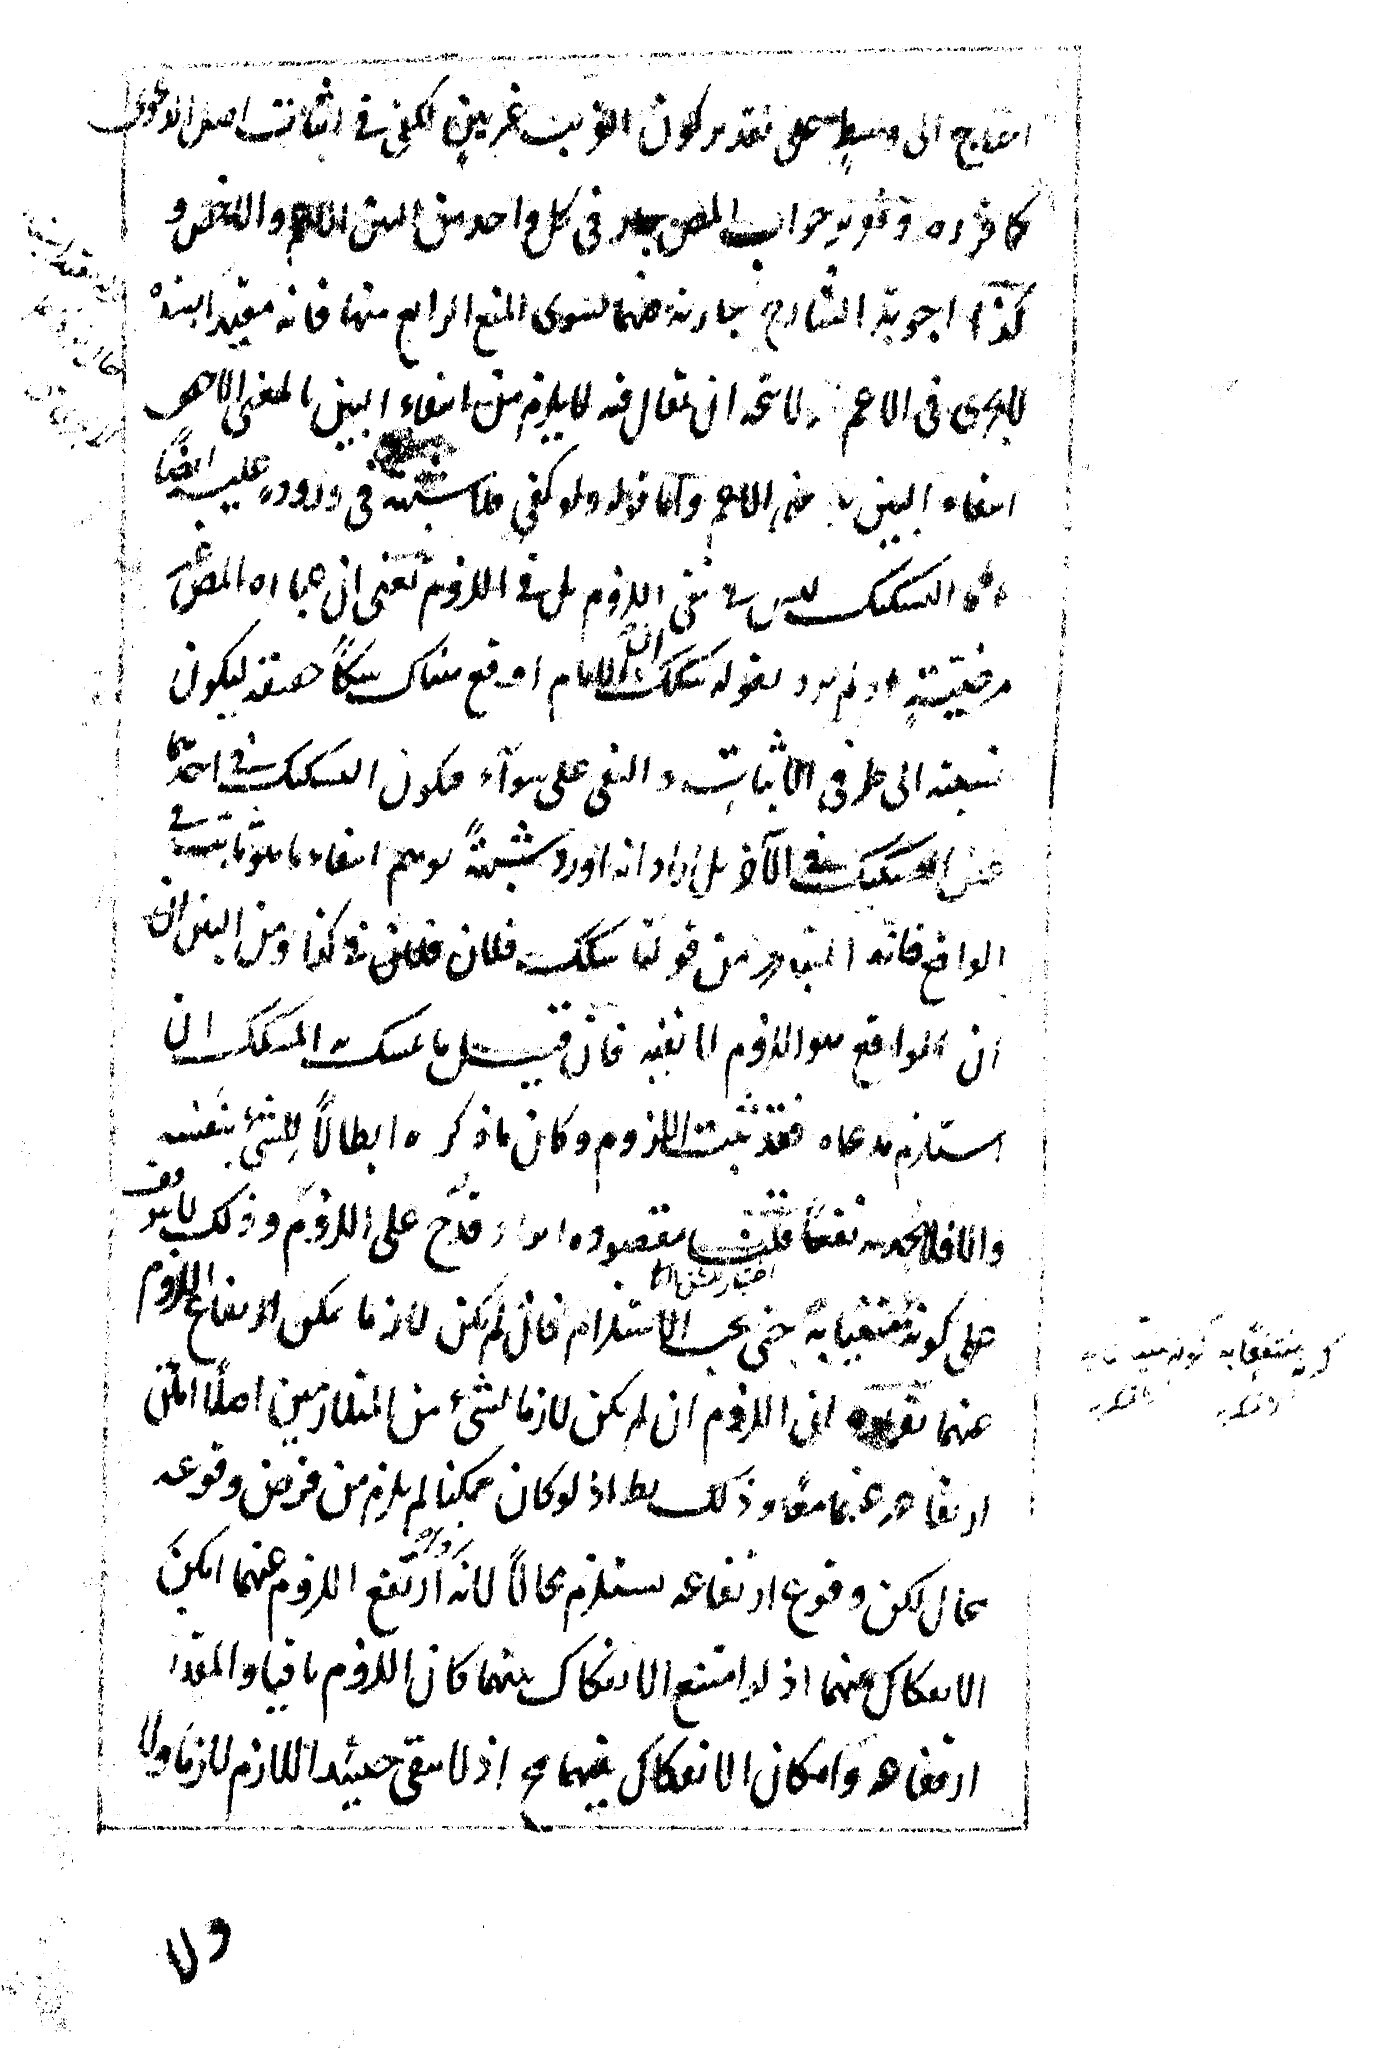 احتاج الى وسط على تقدير كون القريب غير بين لكفى في اثبات اصل الدعوى
كما قرره وتقرير جواب المص جار في كل واحد من البين الاعم والاخص و
كذا اجوبة الشارح جارية فيهما سوى المنع الرابع منها فانه مقيد
لا يجرى في الاعم ولا يتجه ان يقال فيه لا يلزم من انتفاء البين بالمعنى الاخص
انتفاء البين بالمعنى الاعم واما قوله ولو كفى فلا شبهة في وروده عليه ايضا
التشكيك ليس في نفي اللزوم بل في اللزوم يعنى ان عبارة المص غير
مرضية اذ لم يرد بقوله شكك الامام اوقع هناك شكا حقيقة ليكون
نسبته الى طرفى الاثبات والنفى على سوآء فيكون التشكيك في احدهما
عين التشكيك في الآخر بل اراد انه اورد شبهةً توهم انتفاء ما هو ثابت في
الواقع فانه المتبادر من قولنا شكك فلان في كذا ومن البين ان
ان الواقع هو اللزوم لا نفيه فان قيل ما تمسك به المشكك ان
استلزم مدعاه فقد ثبت اللزوم وكان ما ذكره ابطالاً للشئ بنفسه
والا فلا يجديه نفعًا قلنا مقصوده ايراد قدح على اللزوم وذلك لا يتوقف
على كونه حتى يجب الاستلزام فان لم يكن لازما يمكن ارتفاع اللزوم
عنهما تقريره ان اللزوم ان لم يكن لازما لشئ من المتلازمين اصلًا امكن
ارتفاعه عنهما معًا وذلك بط اذ لو كان ممكنا لم يلزم من فرض وقوعه
محال لكن وقوع ارتفاعه يستلزم محالاً لانه ارتفع اللزوم عنهما امكن
الانفكاك عنهما اذ لو امتنع الانفكاك بينهما كان اللزوم باقيا والمقدر
ارتفاعه وامكان الانفكاك بينهما مح اذ لا يبقى حينئذ اللازم لازما ولا
ولا